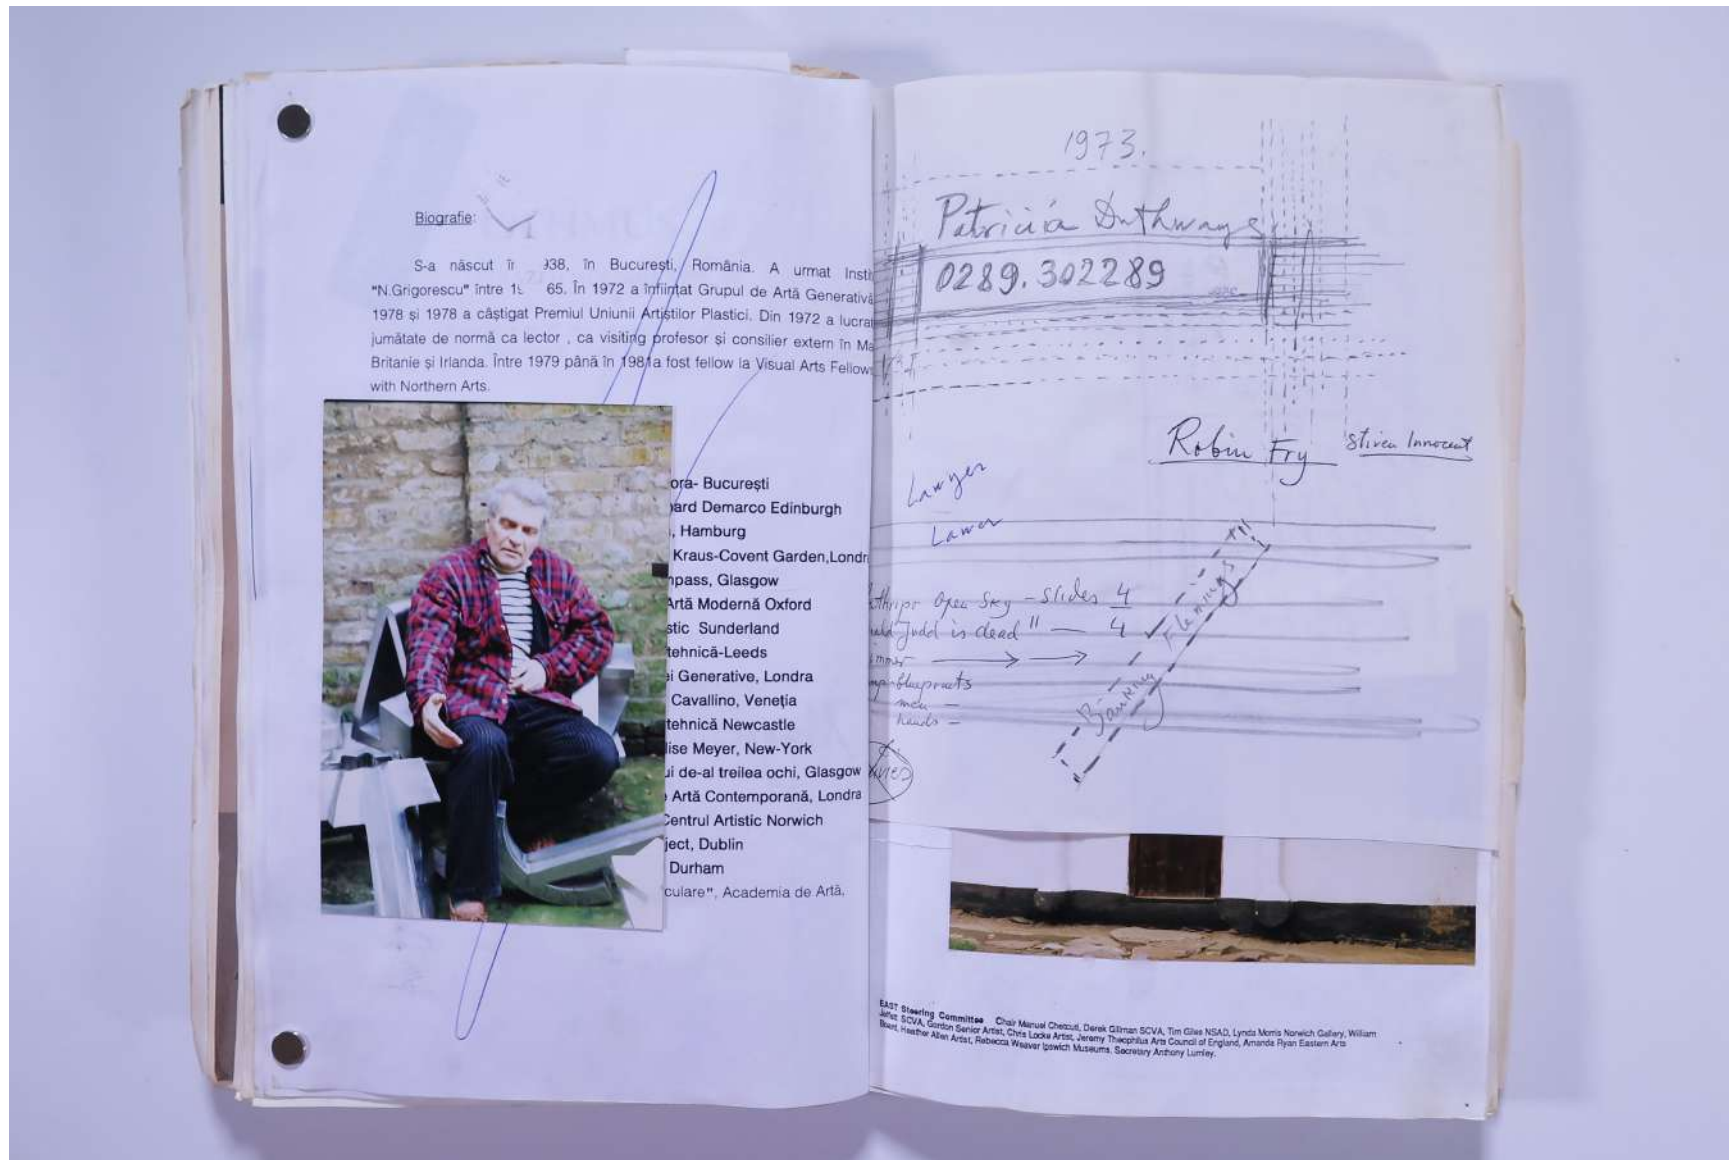 Biografie:
S-a născut în 938, în București, România. A urmat Insti
"N.Grigorescu" între 1 65. În 1972 a înființat Grupul de Artă Generativă
1978 și 1978 a câștigat Premiul Uniunii Artiștilor Plastici. Din 1972 a lucrat
jumătate de normă ca lector , ca visiting profesor si consilier extern în Ma
Britanie și Irlanda. Între 1979 până în 1981a fost fellow la Visual Arts Fellow
with Northern Arts.
ora- București
ard Demarco Edinburgh
, Hamburg
Kraus-Covent Garden,Londr
mpass, Glasgow
Artă Modernă Oxford
stic Sunderland
tehnică-Leeds
ei Generative, Londra
Cavallino, Veneția
tehnică Newcastle
lise Meyer, New-York
ui de-al treilea ochi, Glasgow
Artă Contemporană, Londra
Centrul Artistic Norwich
ject, Dublin
Durham
culare", Academia de Artă,
1973.
Patricia Duthways
0289.302289
Robin Fry
Stiven Innocent
Lawyer
Lawer
Open Sky - Slides 4
Judd is dead" — 4
blueprints
men -
hands -
Banning Flemings
EAST Steering Committee Chair Manuel Chetcuti, Derek Gillman SCVA, Tim Giles NSAD, Lynda Morris Norwich Gallery, William
Jeffett SCVA, Gordon Senior Artist, Chris Locke Artist, Jeremy Theophilus Arts Council of England, Amanda Ryan Eastern Arts
Board, Heather Allen Artist, Rebecca Weaver Ipswich Museums. Secretary Anthony Lumley.